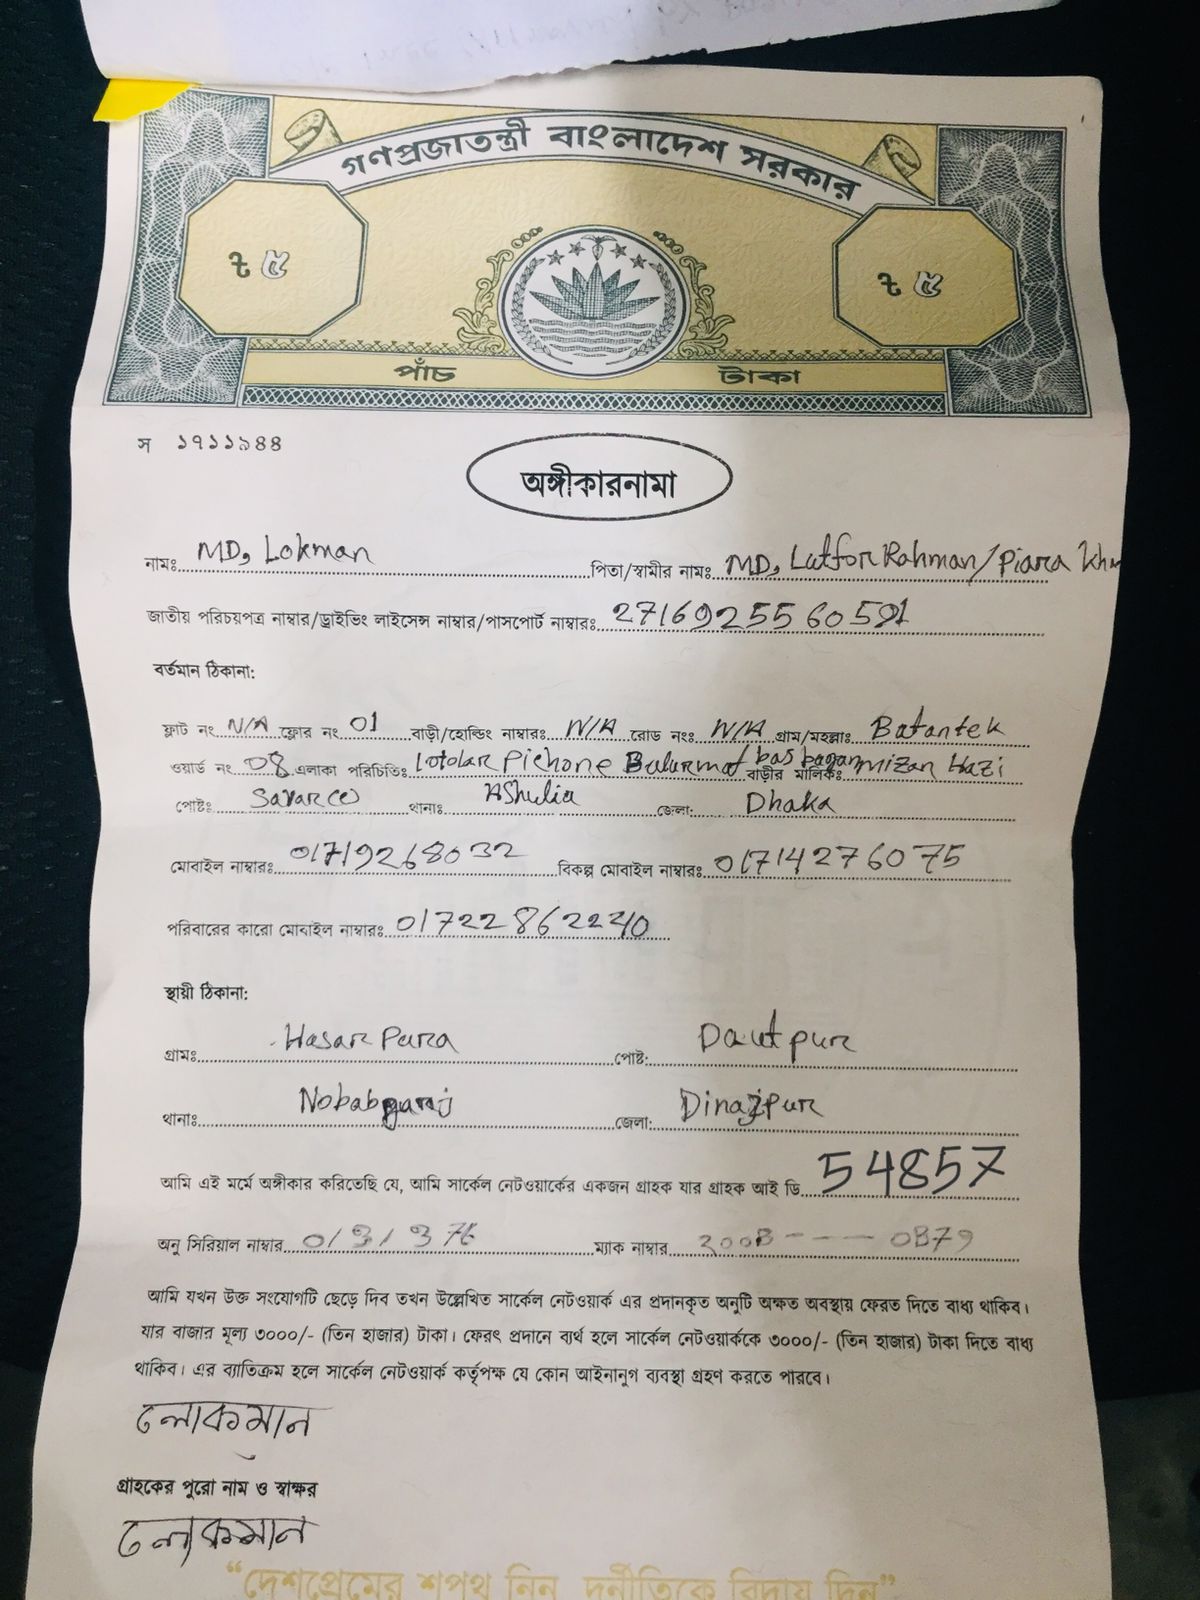 গণপ্রজাতন্ত্রী বাংলাদেশ সরকার
৳ ৫ ৳ ৫
পাঁচ টাকা
স ১৭১১৯৪৪
অঙ্গীকারনামা
নামঃ MD, Lokman পিতা/স্বামীর নামঃ MD, Lutfor Rahman/Piara
জাতীয় পরিচয়পত্র নাম্বার/ড্রাইভিং লাইসেন্স নাম্বার/পাসপোর্ট নাম্বারঃ
বর্তমান ঠিকানা:
ফ্লাট নং N/A ফ্লোর নং 01 বাড়ী/হোল্ডিং নাম্বারঃ N/A রোড নংঃ N/A গ্রাম/মহল্লাঃ Batantek
ওয়ার্ড নং 08 এলাকা পরিচিতিঃ Lotolar Pichone bas bagan বাড়ীর মালিকঃ mizan Hazi
পোষ্টঃ থানাঃ AShulia জেলা: Dhaka
মোবাইল নাম্বারঃ 01719268032 বিকল্প মোবাইল নাম্বারঃ 01714276075
পরিবারের কারো মোবাইল নাম্বারঃ 01722862240
স্থায়ী ঠিকানা:
গ্রামঃ Hasar Para পোষ্ট: Dautpur
থানাঃ Nobabganj জেলা: Dinajpur
আমি এই মর্মে অঙ্গীকার করিতেছি যে, আমি সার্কেল নেটওয়ার্কের একজন গ্রাহক যার গ্রাহক আই ডি 54857
অনু সিরিয়াল নাম্বার 0131376 ম্যাক নাম্বার 200B---- 0B79
আমি যখন উক্ত সংযোগটি ছেড়ে দিব তখন উল্লেখিত সার্কেল নেটওয়ার্ক এর প্রদানকৃত অনুটি অক্ষত অবস্থায় ফেরত দিতে বাধ্য থাকিব।
যার বাজার মূল্য ৩০০০/- (তিন হাজার) টাকা। ফেরৎ প্রদানে ব্যর্থ হলে সার্কেল নেটওয়ার্ককে ৩০০০/- (তিন হাজার) টাকা দিতে বাধ্য
থাকিব। এর ব্যাতিক্রম হলে সার্কেল নেটওয়ার্ক কর্তৃপক্ষ যে কোন আইনানুগ ব্যবস্থা গ্রহণ করতে পারবে।
লোকমান
গ্রাহকের পুরো নাম ও স্বাক্ষর
লোকমান
“দেশপ্রেমের শপথ নিন দুর্নীতিকে বিদায় দিন”